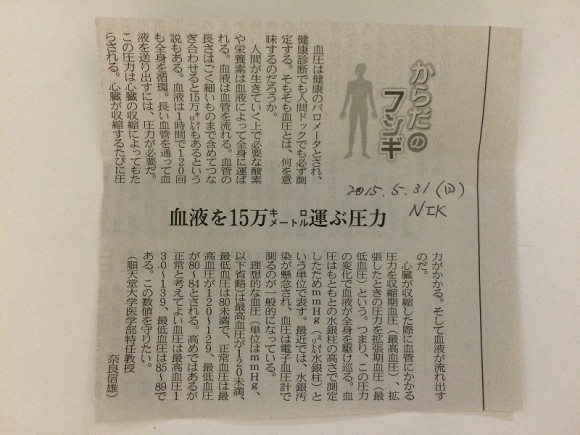 からだの
フシギ
2015.5.31(日)
NIK
血液を15万キロメートル運ぶ圧力
血圧は健康のバロメータとされ、
健康診断でも人間ドックでも必ず測
定する。そもそも血圧とは、何を意
味するのだろうか。
人間が生きていく上で必要な酸素
や栄養素は血液によって全身に運ば
れる。血液は血管を流れる。血管の
長さはごく細いものまで含めてつな
ぎ合わせると15万キロメートルもあるという
説もある。血液は1時間で120回
も全身を循環。長い血管を通って血
液を送り出すには、圧力が必要だ。
この圧力は心臓の収縮によってもた
らされる。心臓が収縮するたびに圧
力がかかる。そして血液が流れ出す
のだ。
心臓が収縮した際に血管にかかる
圧力を収縮期血圧（最高血圧）、拡
張したときの圧力を拡張期血圧（最
低血圧）という。つまり、この圧力
の変化で血液が全身を駆け巡る。血
圧はもともとの水銀柱の高さで測定
したためmmHg（ミリメートル水銀柱）と
いう単位で表す。最近では、水銀汚
染が懸念され、血圧は電子血圧計で
測るのが一般的になっている。
理想的な血圧（単位はmmHg、
以下省略）は最高血圧が120未満、
最低血圧は80未満で、正常血圧は最
高血圧が120〜129、最低血圧
が80〜84とされる。高めではあるが
正常と考えてよい血圧は最高血圧1
30〜139、最低血圧は85〜89で
ある。この数値を守りたい。
（順天堂大学医学部特任教授
奈良信雄）